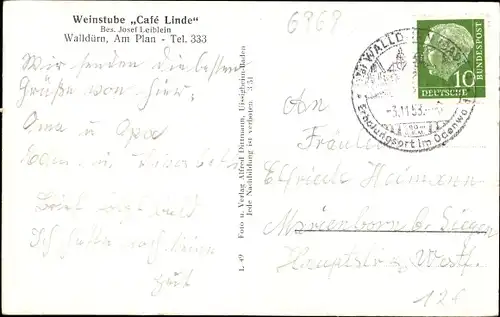 Weinstube „Café Linde"
Bes. Josef Leiblein
Walldürn, Am Plan - Tel. 333
6968
Wir senden die besten
Grüße von hier.
Oma u Opa
Brief folgt bald
Ich
Zeit
L 49 Foto u. Verlag Alfred Dittmann, Uissigheim-Baden
Jede Nachbildung ist verboten. 3.51
WALLD
-3.11.53.
Erholungsort im Odenwald
10
DEUTSCHE
BUNDESPOST
An
Fräulein
Elfriede Heimann
Marienborn b. Siegen
Hauptstr Westf.
12f